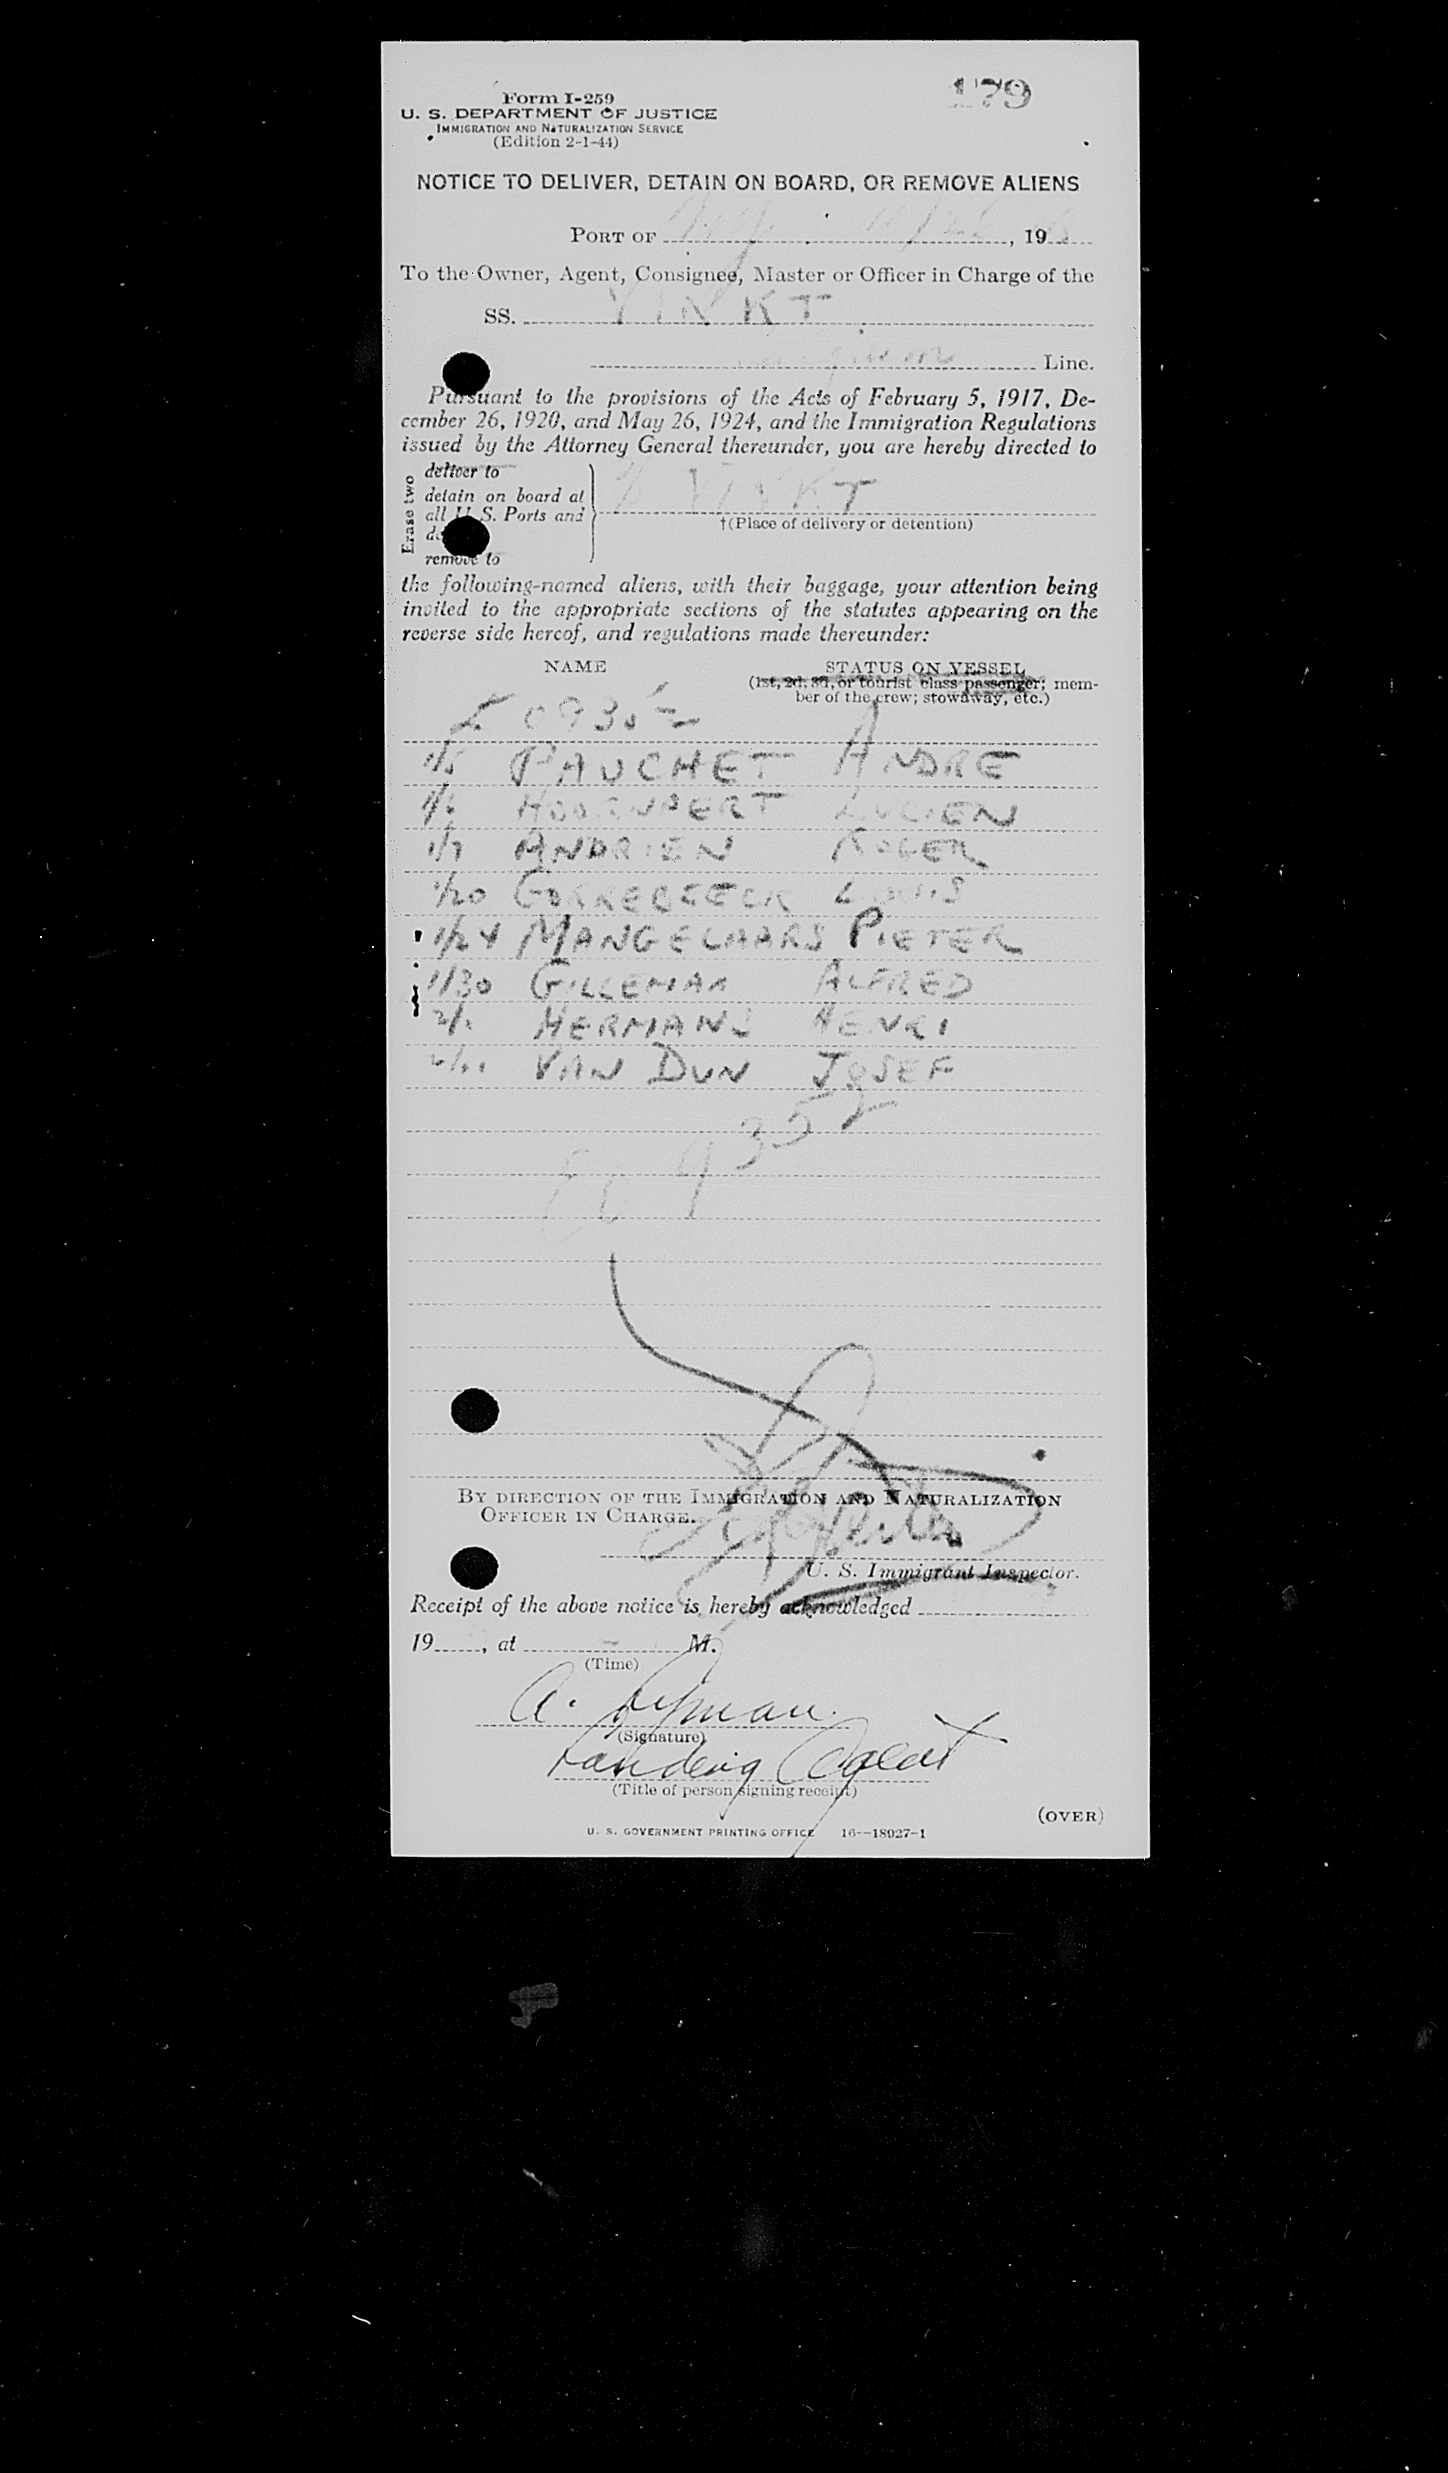 179
Form I-259
U. S. DEPARTMENT OF JUSTICE
IMMIGRATION AND NATURALIZATION SERVICE
(Edition 2-1-44)
NOTICE TO DELIVER, DETAIN ON BOARD, OR REMOVE ALIENS
PORT OF , 19
To the Owner, Agent, Consignee, Master or Officer in Charge of the
SS. VINKT
Line.
Pursuant to the provisions of the Acts of February 5, 1917, De-
cember 26, 1920, and May 26, 1924, and the Immigration Regulations
issued by the Attorney General thereunder, you are hereby directed to
Erase two
deliver to
detain on board at
all U. S. Ports and
remove to
VINKT
†(Place of delivery or detention)
the following-named aliens, with their baggage, your attention being
invited to the appropriate sections of the statutes appearing on the
reverse side hereof, and regulations made thereunder:
NAME STATUS ON VESSEL
(1st, 2d, 3d, or tourist class passenger; mem-
ber of the crew; stowaway, etc.)
PAUCHET ANDRE
LUCIEN
1/7 ANDRIEN ROGER
1/20 LOUIS
1/24 MANGELAARS PIETER
1/30 GILLEMAN ALFRED
HERMANS HENRI
VAN DUN JOSEF
9352
BY DIRECTION OF THE IMMIGRATION AND NATURALIZATION
OFFICER IN CHARGE.
U. S. Immigrant Inspector.
Receipt of the above notice is hereby acknowledged
19 , at M.
(Time)
A.
(Signature)
Landing Agent
(Title of person signing receipt)
(OVER)
U. S. GOVERNMENT PRINTING OFFICE 16—18927-1